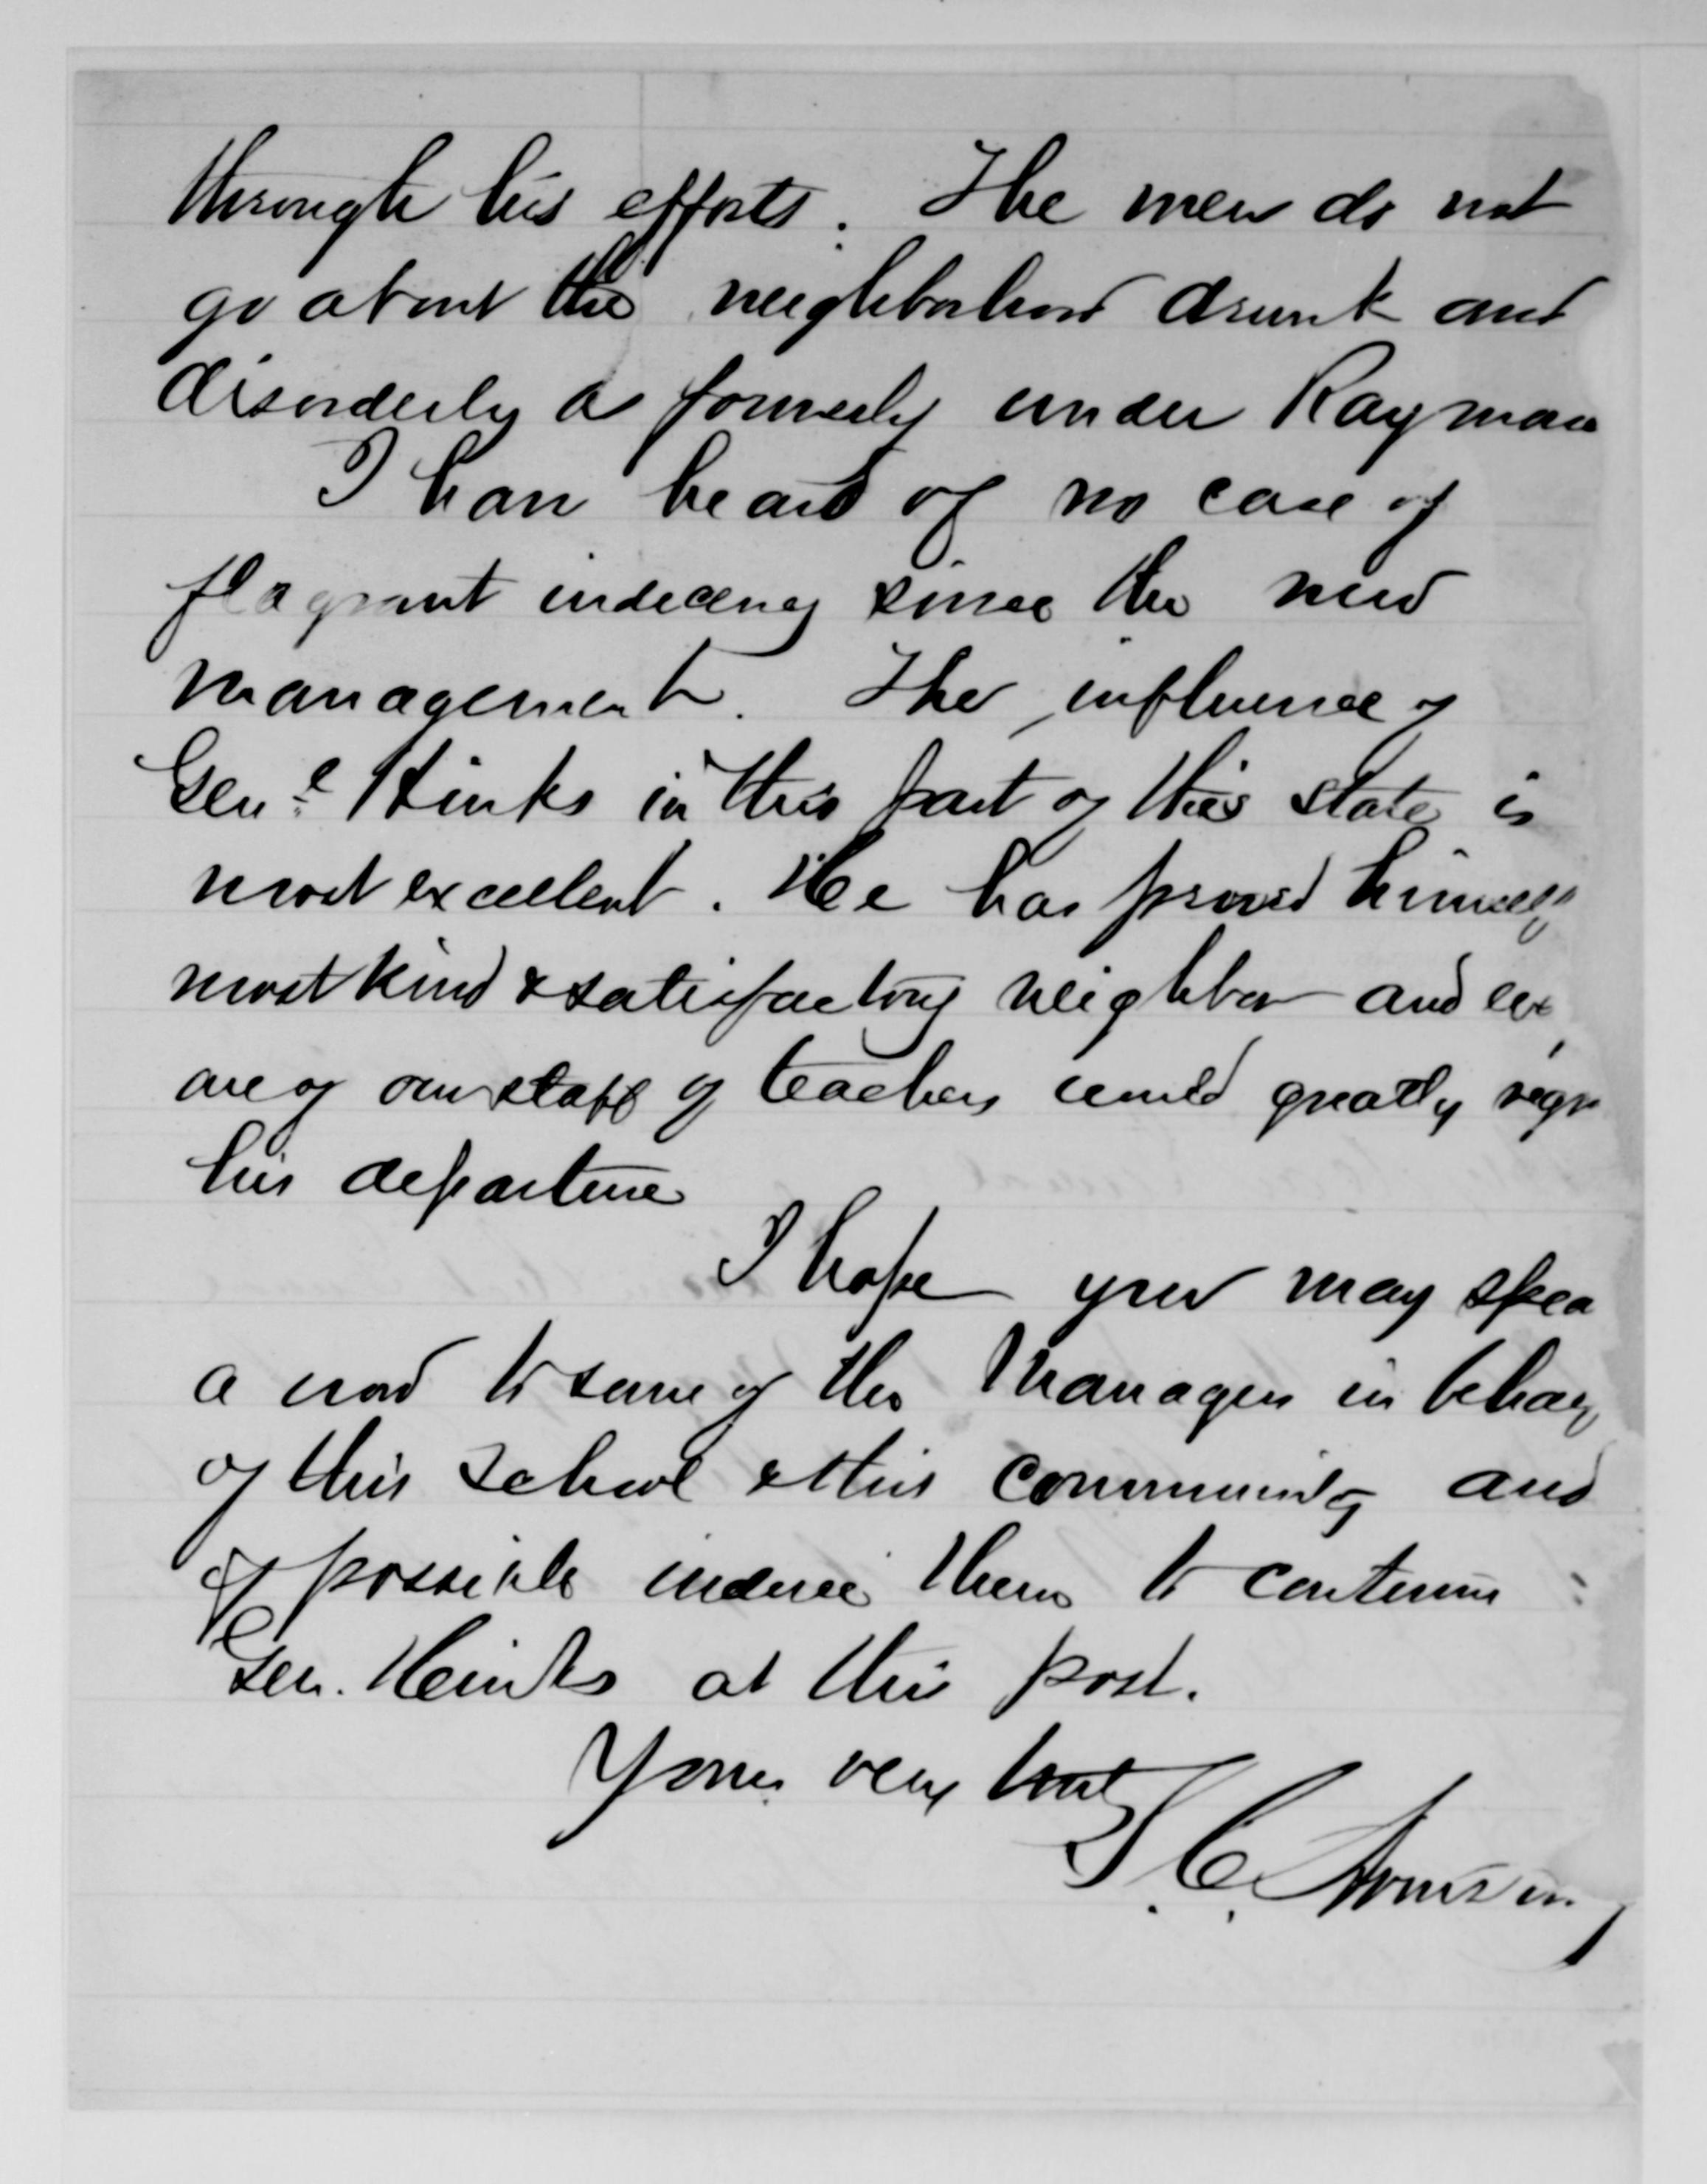 through his efforts. The men do not
go about the neighborhood drunk and
disorderly as formerly under Rayman
I have heard of no case of
flagrant indecency since the new
management. The influence of
Genl Hinks in this part of this state is
most excellent. He has proved himself
most kind & satisfactory neighbor and
one of our staff of teachers would greatly regr
his departure
I hope you may spea
a word to some of the Managers in behalf
of this School & this community and
if possible induce them to continue
Gen. Heinks at this post.
Yours very truly
S. C. Armstrong